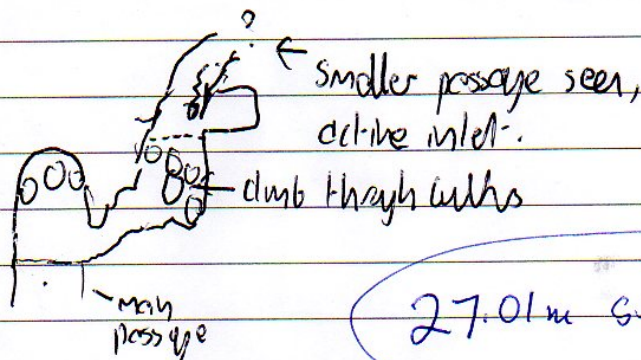 ?
← smaller passage seen,
active inlet.
← climb through
main
passage
27.01m